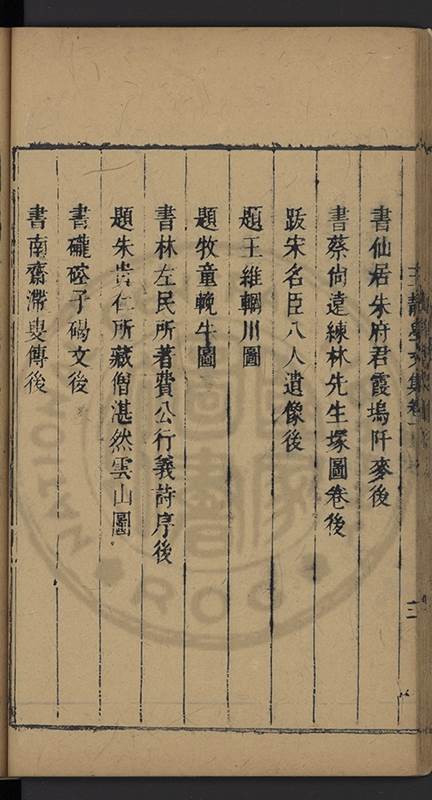 書仙居朱府君霞塢阡麥後
書蔡尙遠練林先生塚圖卷後
跋宋名臣八人遺像後
題王維輞川圖
題牧童輓牛圖
書林左民所著費公行義詩序後
題朱貴仁所藏僧湛然雲山圖
書礲硿子碣文後
書南齋滯叟傳後
三